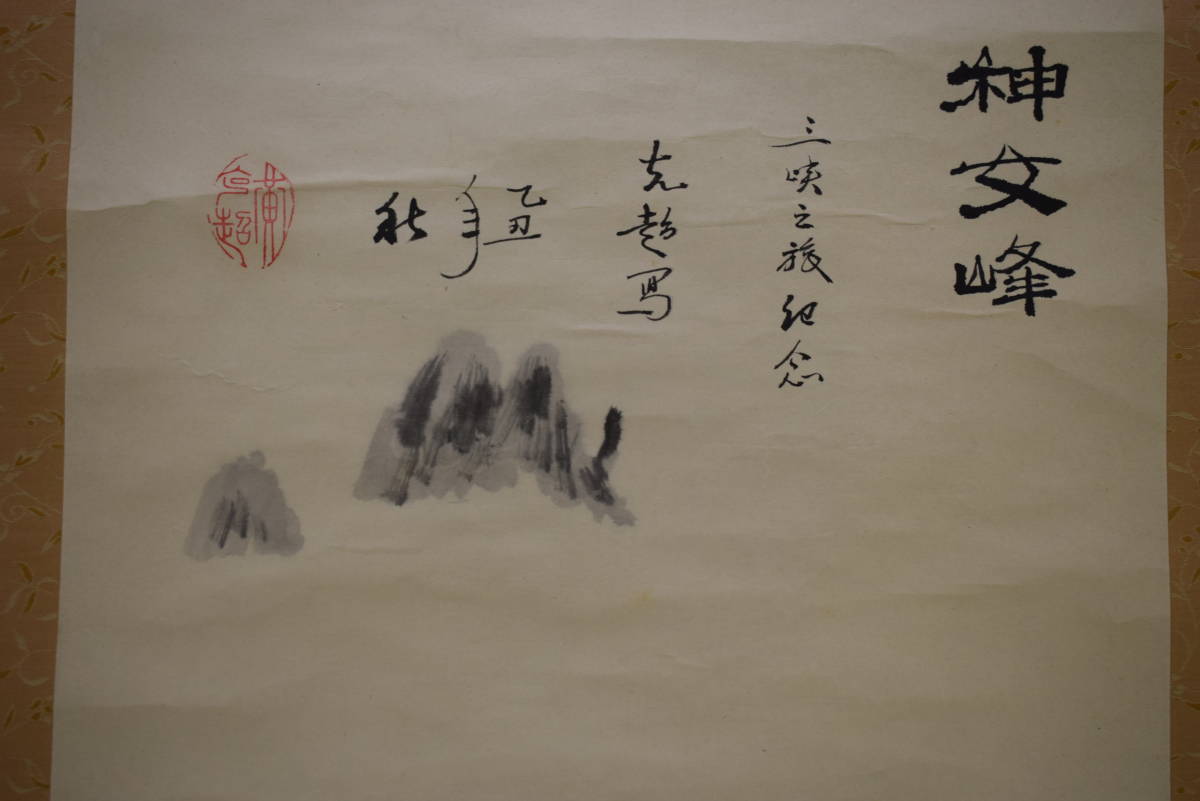 神女峰
三峡之旅纪念
克超写
乙丑年秋
黄克超